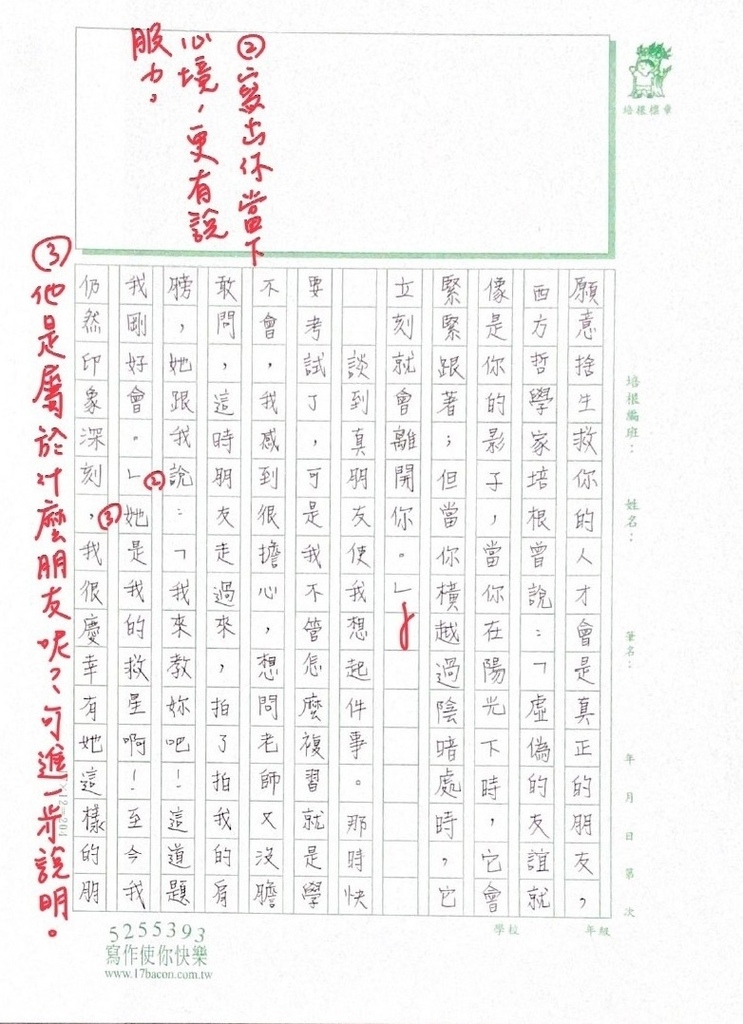 培根標章
②寫出你當下
心境，更有說
服力。
培根編班：
姓名：
筆名：
年 月 日 第 次
願意捨生救你的人才會是真正的朋友，
西方哲學家培根曾說：「虛偽的友誼就
像是你的影子，當你在陽光下時，它會
緊緊跟著；但當你橫越過陰暗處時，它
立刻就會離開你。」
談到真朋友使我想起件事。那時快
要考試了，可是我不管怎麼複習就是學
不會，我感到很擔心，想問老師又沒膽
敢問，這時朋友走過來，拍了拍我的肩
膀，她跟我說：「我來教妳吧！這道題
我剛好會。」②她是我的救星啊！至今我
仍然印象深刻，③我很慶幸有她這樣的朋
③他是屬於什麼朋友呢？可進一步說明。
學校
年級
5255393
寫作使你快樂
www.17bacon.com.tw